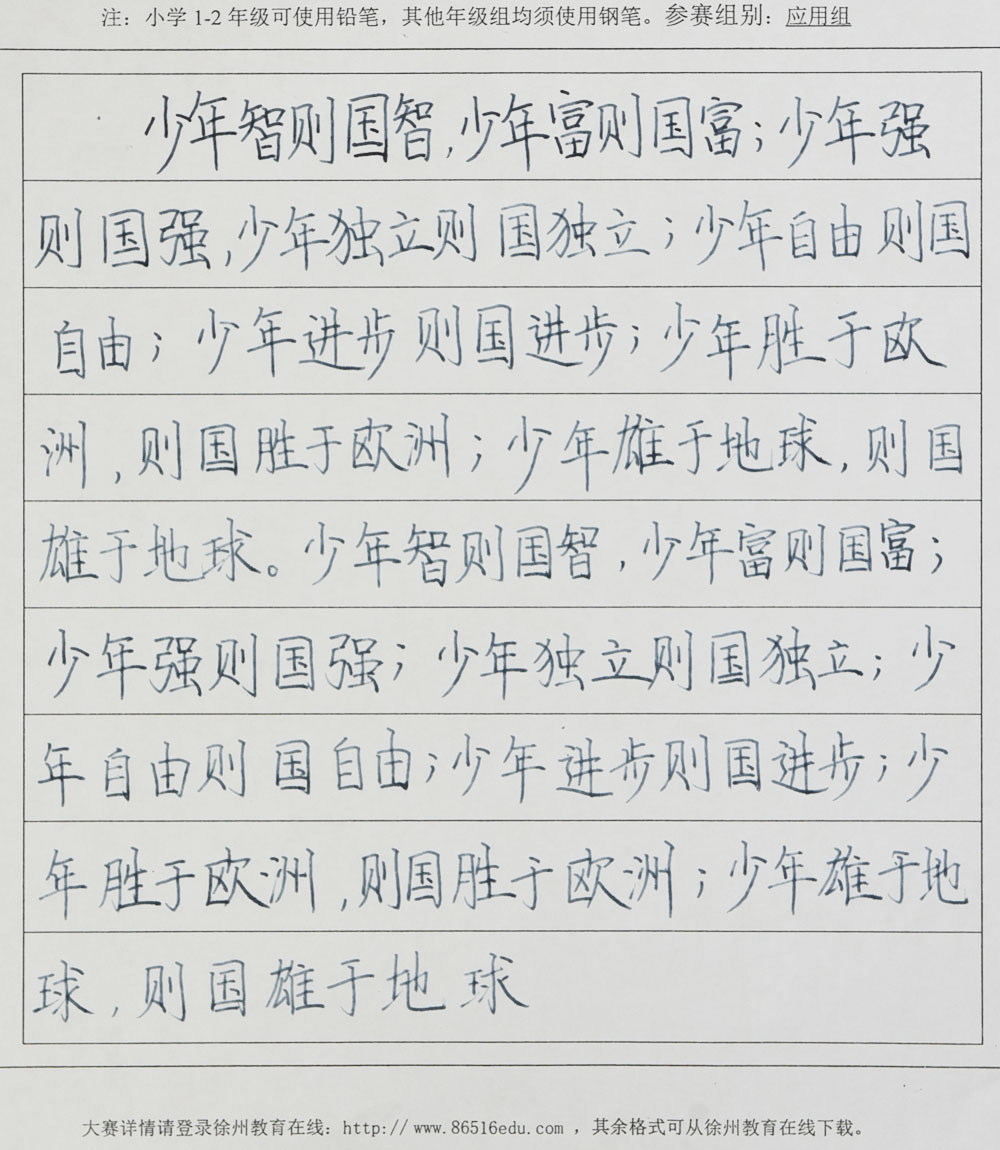 注：小学 1-2 年级可使用铅笔，其他年级组均须使用钢笔。参赛组别：应用组
少年智则国智,少年富则国富；少年强
则国强,少年独立则国独立；少年自由则国
自由；少年进步则国进步；少年胜于欧
洲,则国胜于欧洲；少年雄于地球,则国
雄于地球。少年智则国智,少年富则国富；
少年强则国强；少年独立则国独立；少
年自由则国自由；少年进步则国进步；少
年胜于欧洲,则国胜于欧洲；少年雄于地
球,则国雄于地球
大赛详情请登录徐州教育在线：http://www.86516edu.com，其余格式可从徐州教育在线下载。